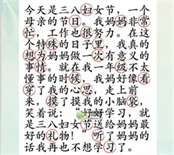 今天是三八妇女节，一个
母亲的节日。我妈妈非常
忙，工作也很努力。在这
个特殊的日子里，我真的
想为妈妈做一次有意义的
事情。就在我一年级不太
懂事的时候，我妈好像看
穿了我的心思，走上前
来，摸了摸我的小脑袋，
笑着说：“好好学习，就
是三八妇女节送给妈妈最
好的礼物！”听了妈妈的
话我再也不想学习了。